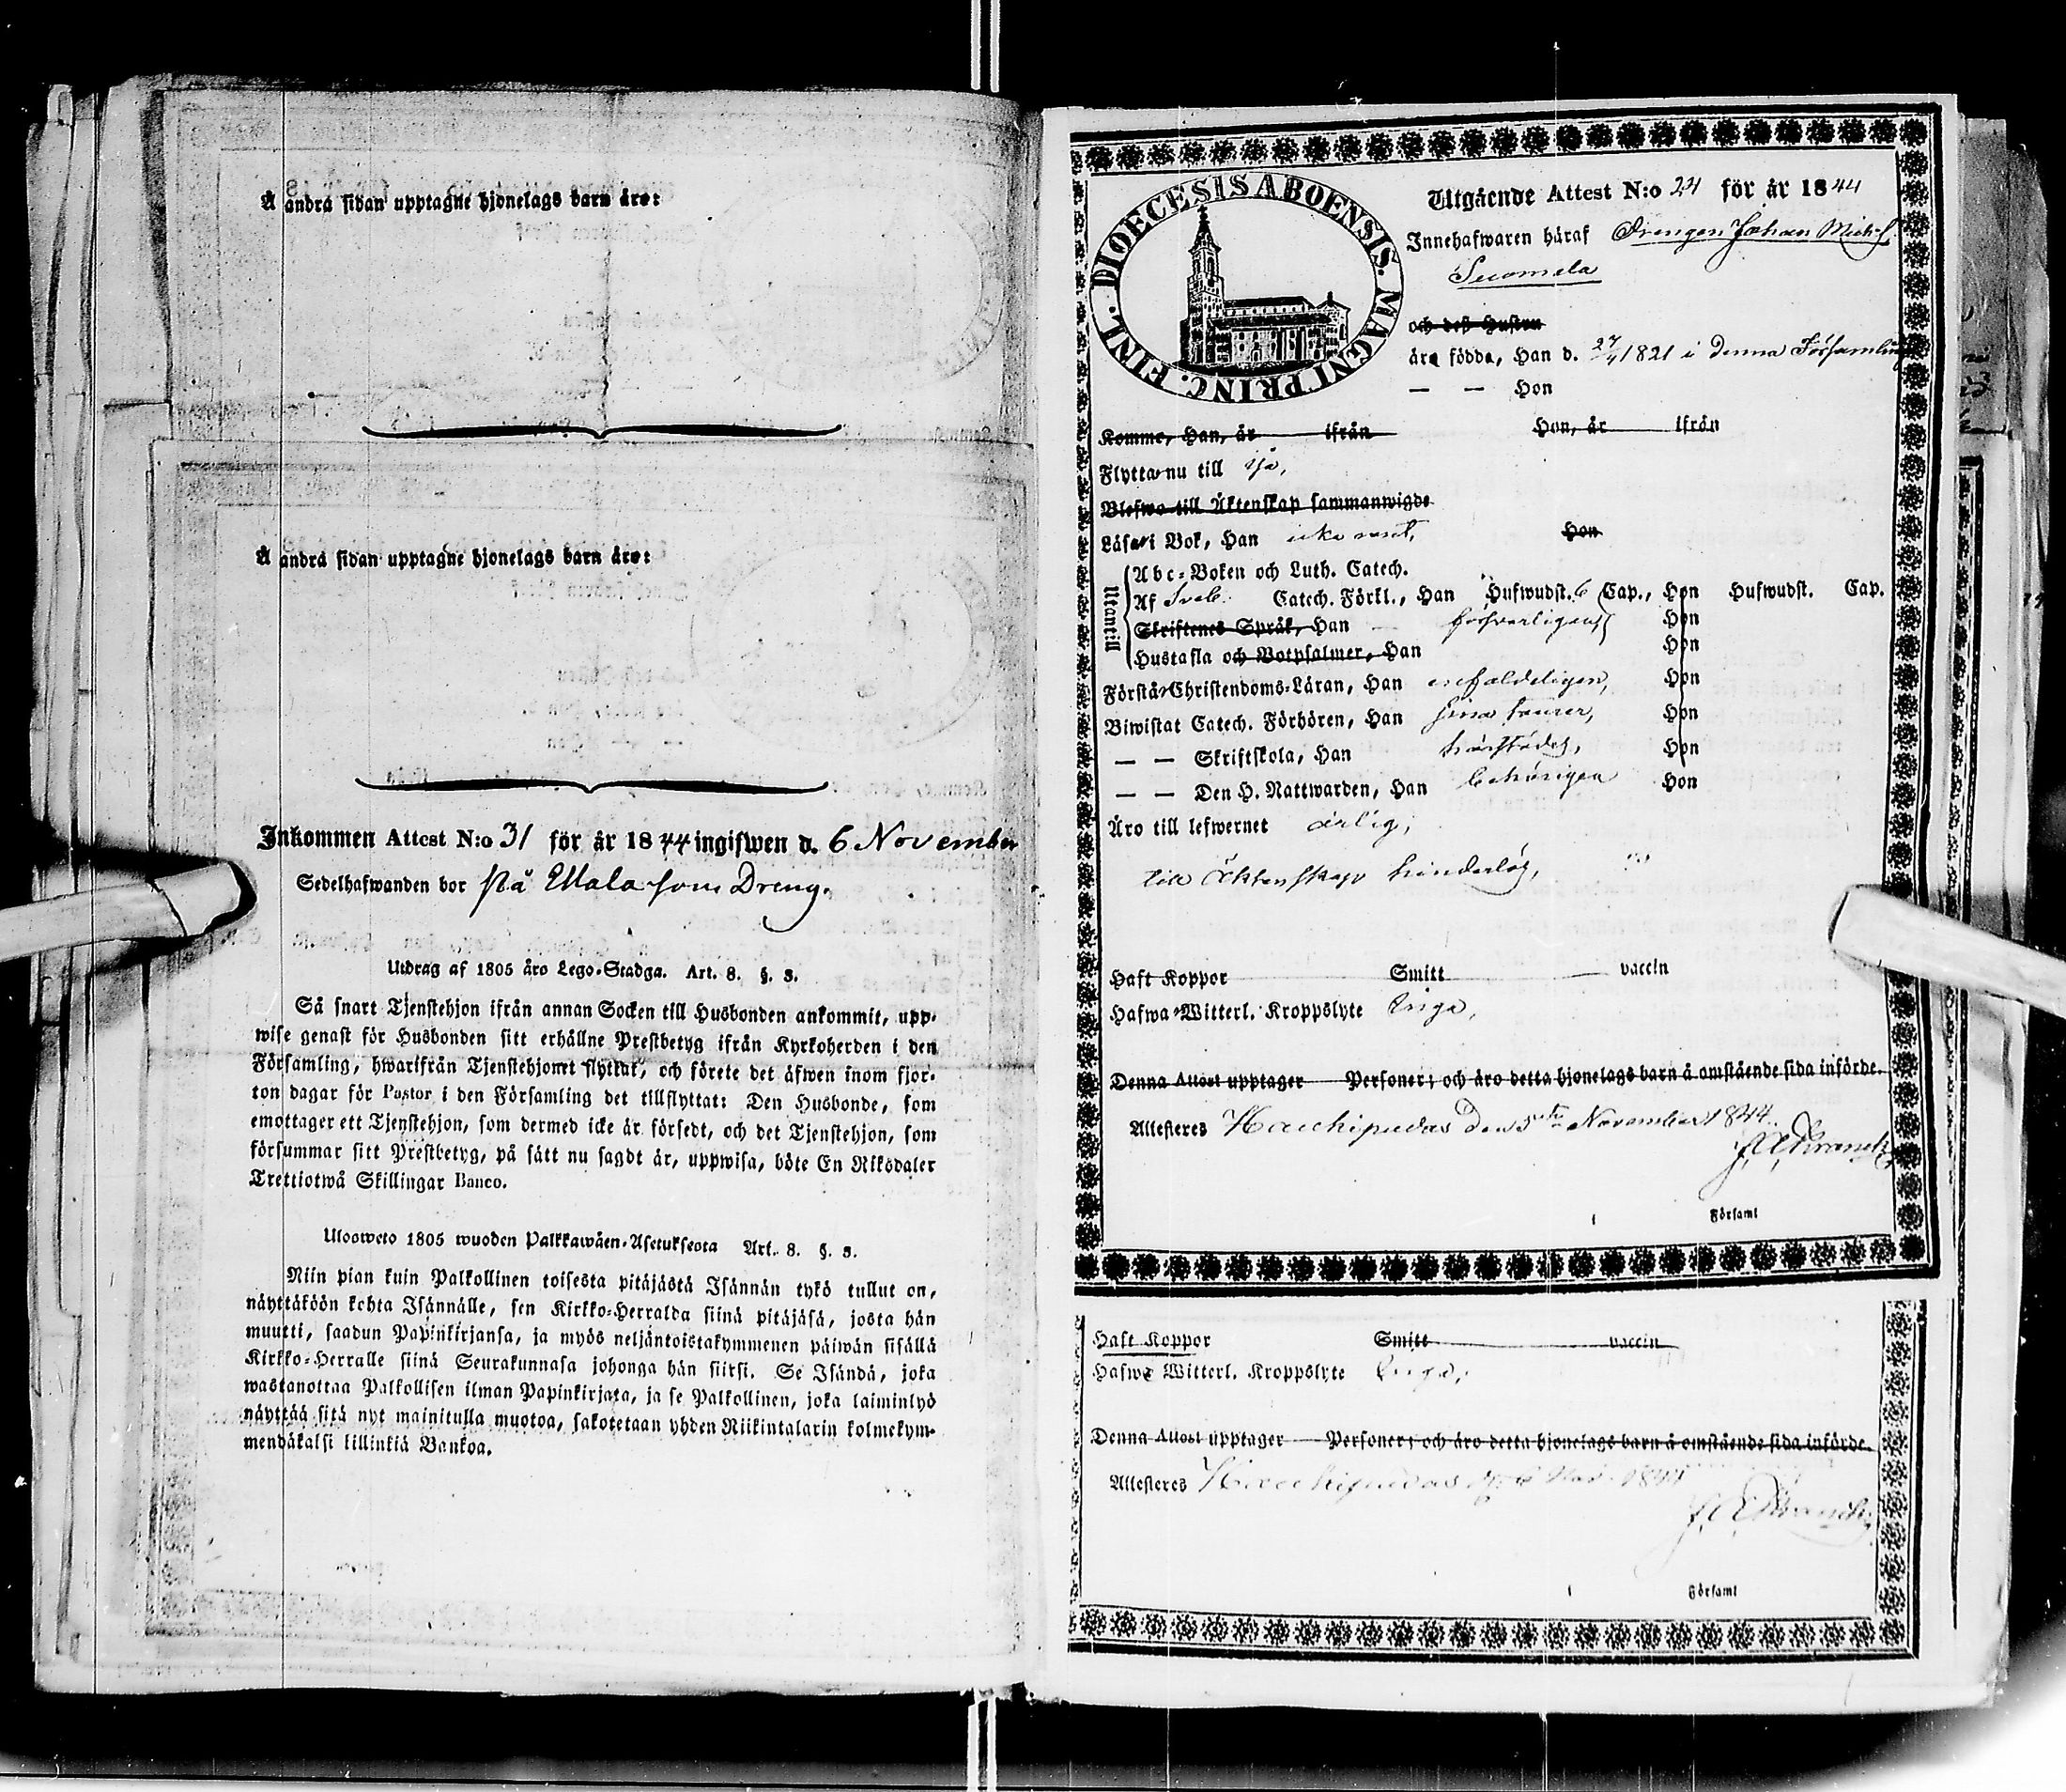 Å andra sidan upptagne hjonelags barn äro:
Å andra sidan upptagne hjonelags barn äro:
Inkommen Attest N:o 31 för år 1844 ingifwen d. 6 November
Sedelhafwanden bor på Ullala som Dreng.
Utdrag af 1805 års Lego-Stadga. Art. 8. §. 3.
Så snart Tjenstehjon ifrån annan Socken till Husbonden ankommit, upp-
wise genast för Husbonden sitt erhållne Prestbetyg ifrån Kyrkoherden i den
Församling, hwarifrån Tjenstehjonet flyttat, och förete det äfwen inom fjor-
ton dagar för Pastor i den Församling det tillflyttat: Den Husbonde, som
emottager ett Tjenstehjon, som dermed icke är försedt, och det Tjenstehjon, som
försummar sitt Prestbetyg, på sätt nu sagdt är, uppwisa, böte En Riksdaler
Trettiotwå Skillingar Banco.
Ulosweto 1805 wuoden Palkkawäen-Asetuksesta Art. 8. §. 3.
Niin pian kuin Palkollinen toisesta pitäjästä Isännän tykö tullut on,
näyttäköön kohta Isännälle, sen Kirkko-Herralda siinä pitäjäsä, josta hän
muutti, saadun Papinkirjansa, ja myös neljäntoistakymmenen päiwän sisällä
Kirkko-Herralle siinä Seurakunnasa johonga hän siirsi. Se Isändä, joka
wastanottaa Palkollisen ilman Papinkirjata, ja se Palkollinen, joka laiminlyö
näyttää sitä nyt mainitulla muotoa, sakotetaan yhden Riikintalarin kolmekym-
mendäkaksi killinkiä Bankoa.
DIOECESIS ABOENSIS. MAGNI PRINC. FINL.
Utgående Attest N:o 24 för år 1844
Innehafwaren häraf Drengen Johan Mich:l
Suomela
och dess Hustru
äro födda, Han d. 27/4 1821 i denna Församling
— — Hon
Komne, Han, år ifrån Hon, år ifrån
Flytta nu till Ijo,
Blefwo till Äktenskap sammanwigde
Läsa i Bok, Han icke rent, Hon
Utantill
Abc-Boken och Luth. Catech.
Af Sveb. Catech. Förkl., Han Hufwudst. 6 Cap., Hon Hufwudst. Cap.
Skriftenes Språk, Han försvarligen, Hon
Hustafla och Botpsalmer, Han Hon
Förstå Christendoms-Läran, Han enfaldeligen, Hon
Biwistat Catech. Förhören, Han sina turer, Hon
— — Skriftskola, Han härstädes, Hon
— — Den H. Nattwarden, Han behörigen Hon
Äro till lefwernet ärlig,
till äktenskap hinderlös,
Haft Koppor Smitt vaccin
Hafwa Witterl. Kroppslyte Inga,
Denna Attest upptager Personer; och äro detta hjonelags barn å omstående sida införde.
Attesteres Haukipudas den 5te November 1844.
Församl
Haft Koppor Smitt vaccin
Hafwa Witterl. Kroppslyte Inga,
Denna Attest upptager Personer; och äro detta hjonelags barn å omstående sida införde.
Attesteres Haukipudas Nov. 1844
Församl